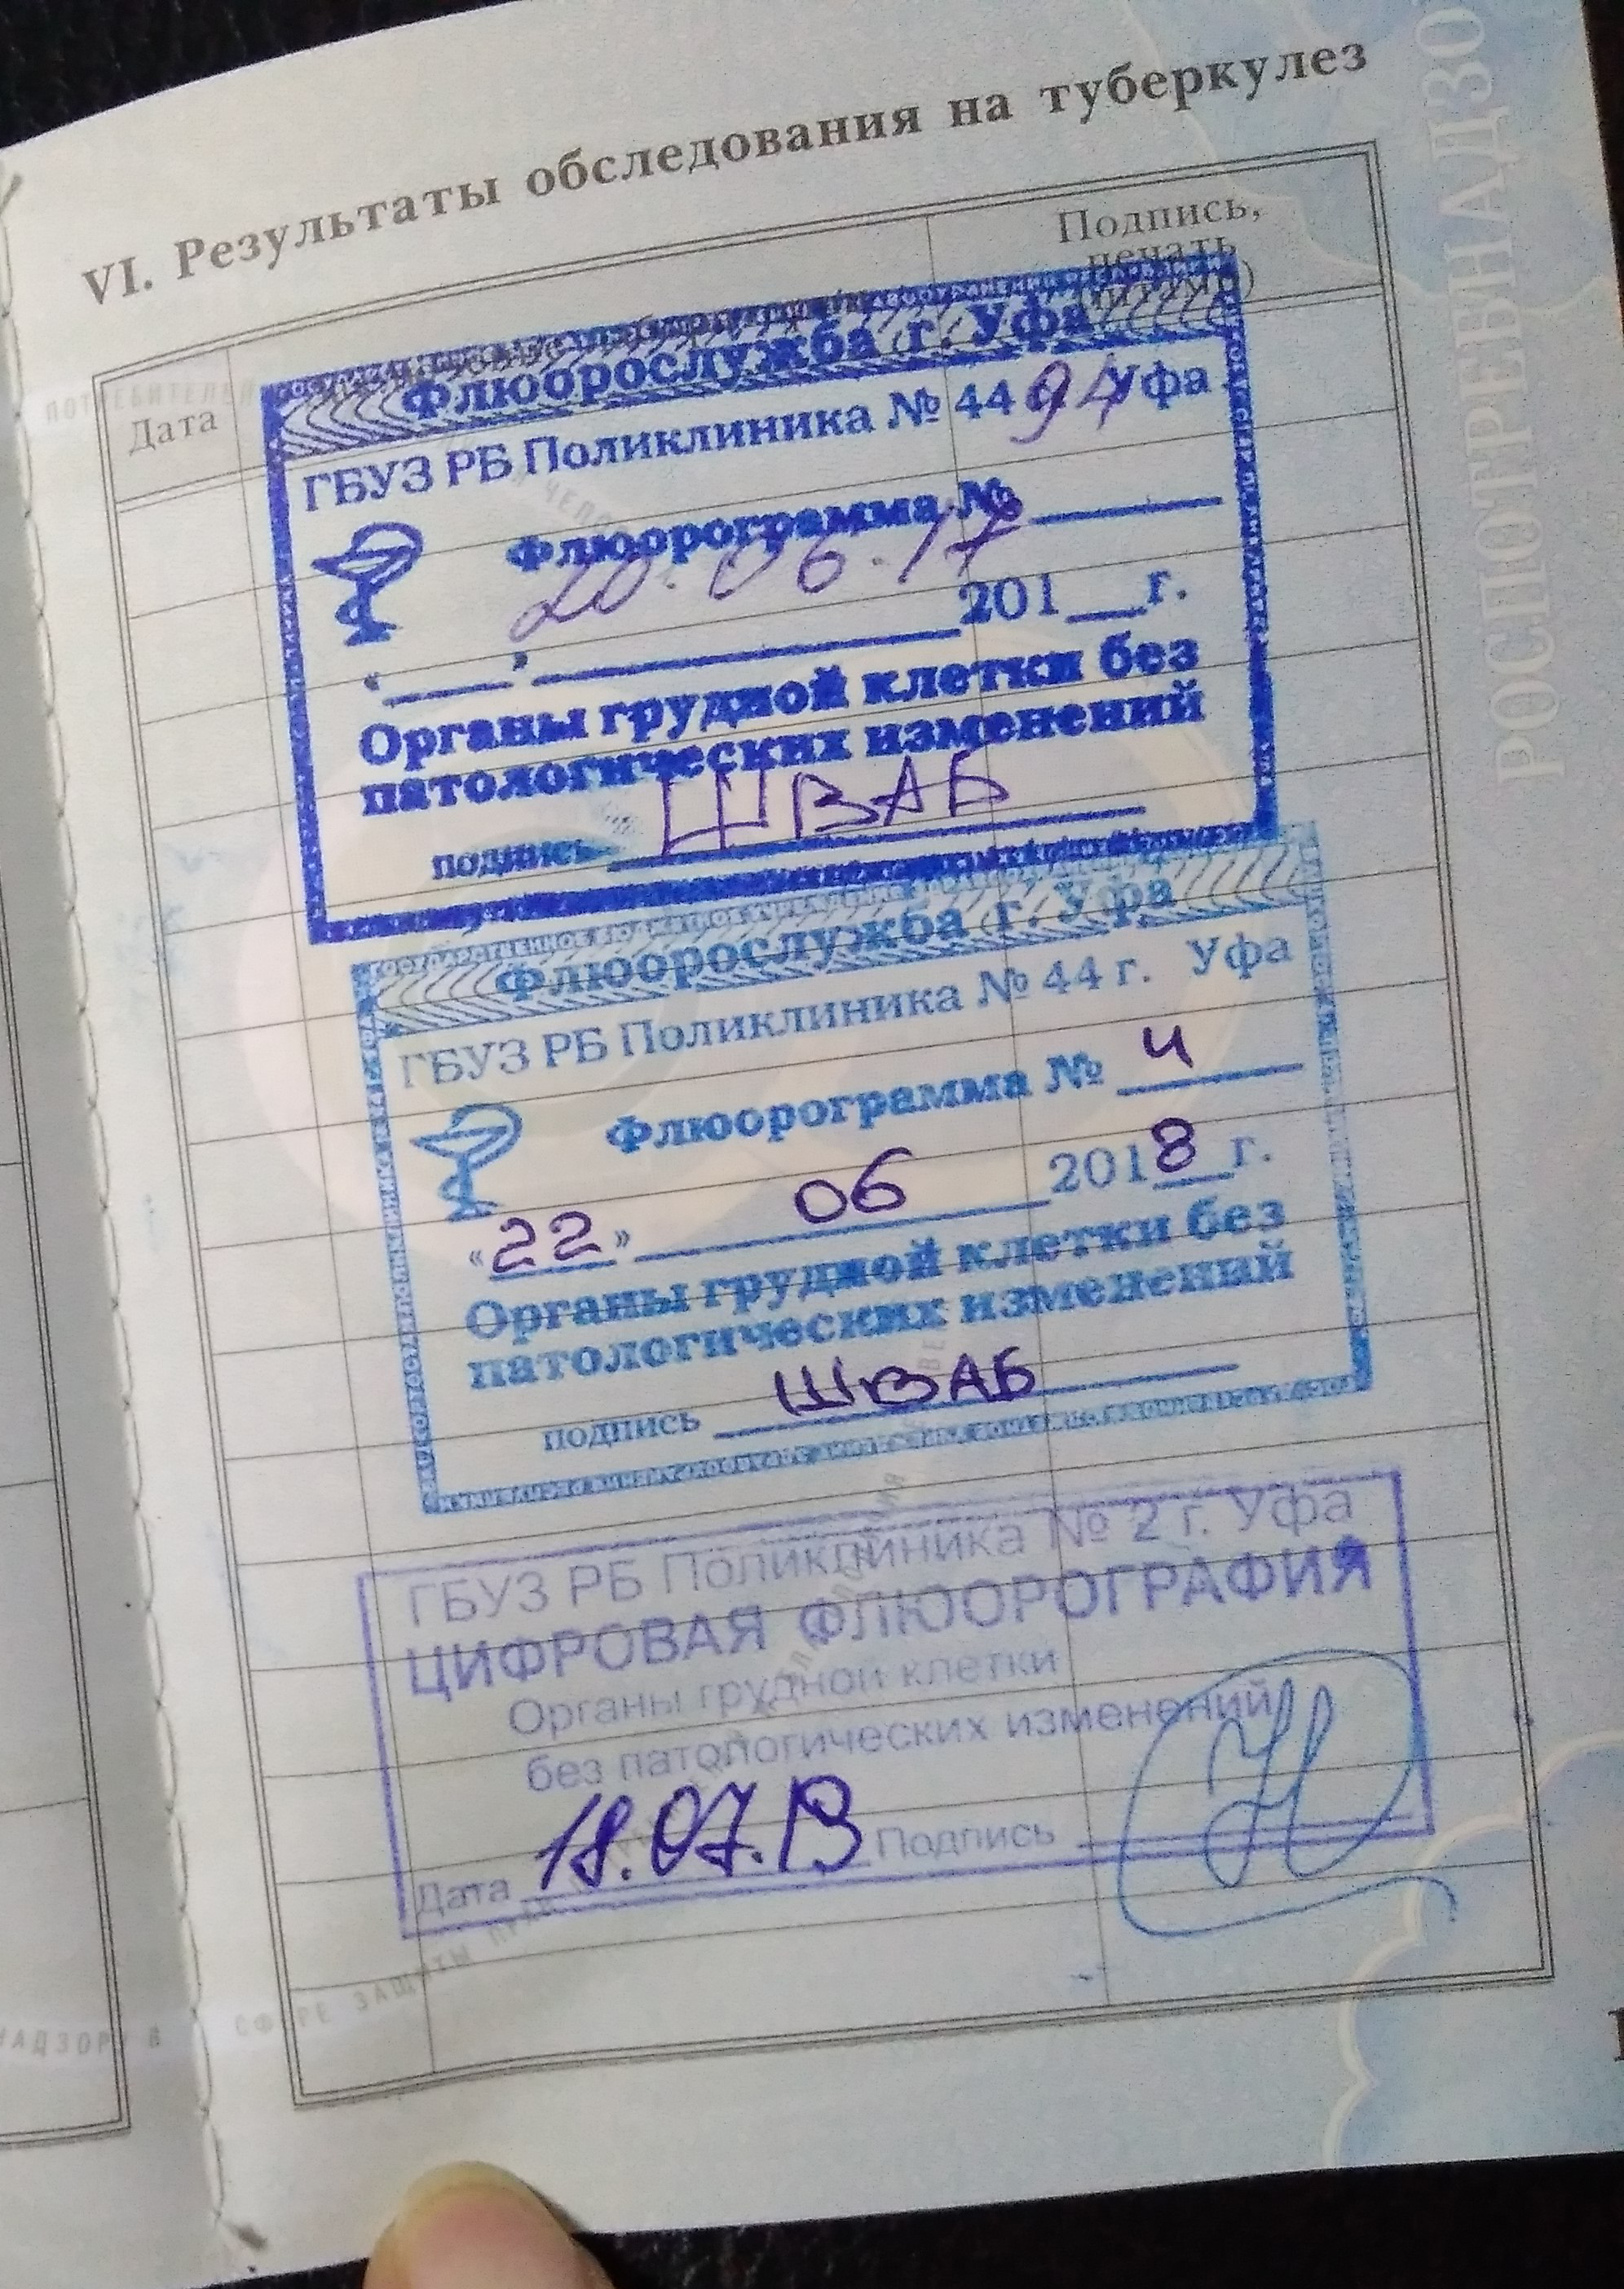 VI. Результаты обследования на туберкулез
Дата
Подпись,
печать
Флюорослужба г. Уфа
ГБУЗ РБ Поликлиника № 44 94 Уфа
Флюорограмма №
20.06.17
« » 201 г.
Органы грудной клетки без
патологических изменений
подпись ШВАБ
Флюорослужба г. Уфа
ГБУЗ РБ Поликлиника № 44 г. Уфа
Флюорограмма № 4
«22» 06 2018 г.
Органы грудной клетки без
патологических изменений
подпись ШВАБ
ГБУЗ РБ Поликлиника № 2 г. Уфа
ЦИФРОВАЯ ФЛЮОРОГРАФИЯ
Органы грудной клетки
без патологических изменений
Дата 18.07.19 Подпись
СФЕРЕ ЗАЩИТЫ ПРАВ
НАДЗОРУ В
ПОТРЕБИТЕЛЕЙ
РОСПОТРЕБНАДЗО